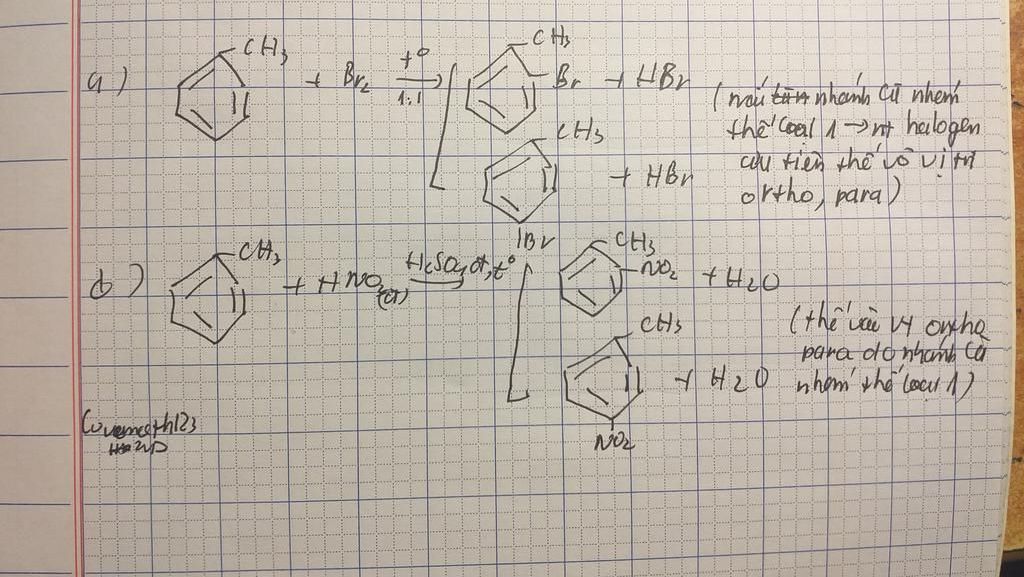 a) CH3 + Br2 t° 1:1 CH3 Br + HBr
CH3 Br + HBr
(nếu nhánh là nhóm
thế loại 1 → nt halogen
ưu tiên thế vô vị trí
ortho, para)
b) CH3 + HNO3 (đ) H2SO4 đ, t° CH3 NO2 + H2O
CH3 NO2 + H2O
(thế vào vt ortho
para do nhánh là
nhóm thế loại 1)